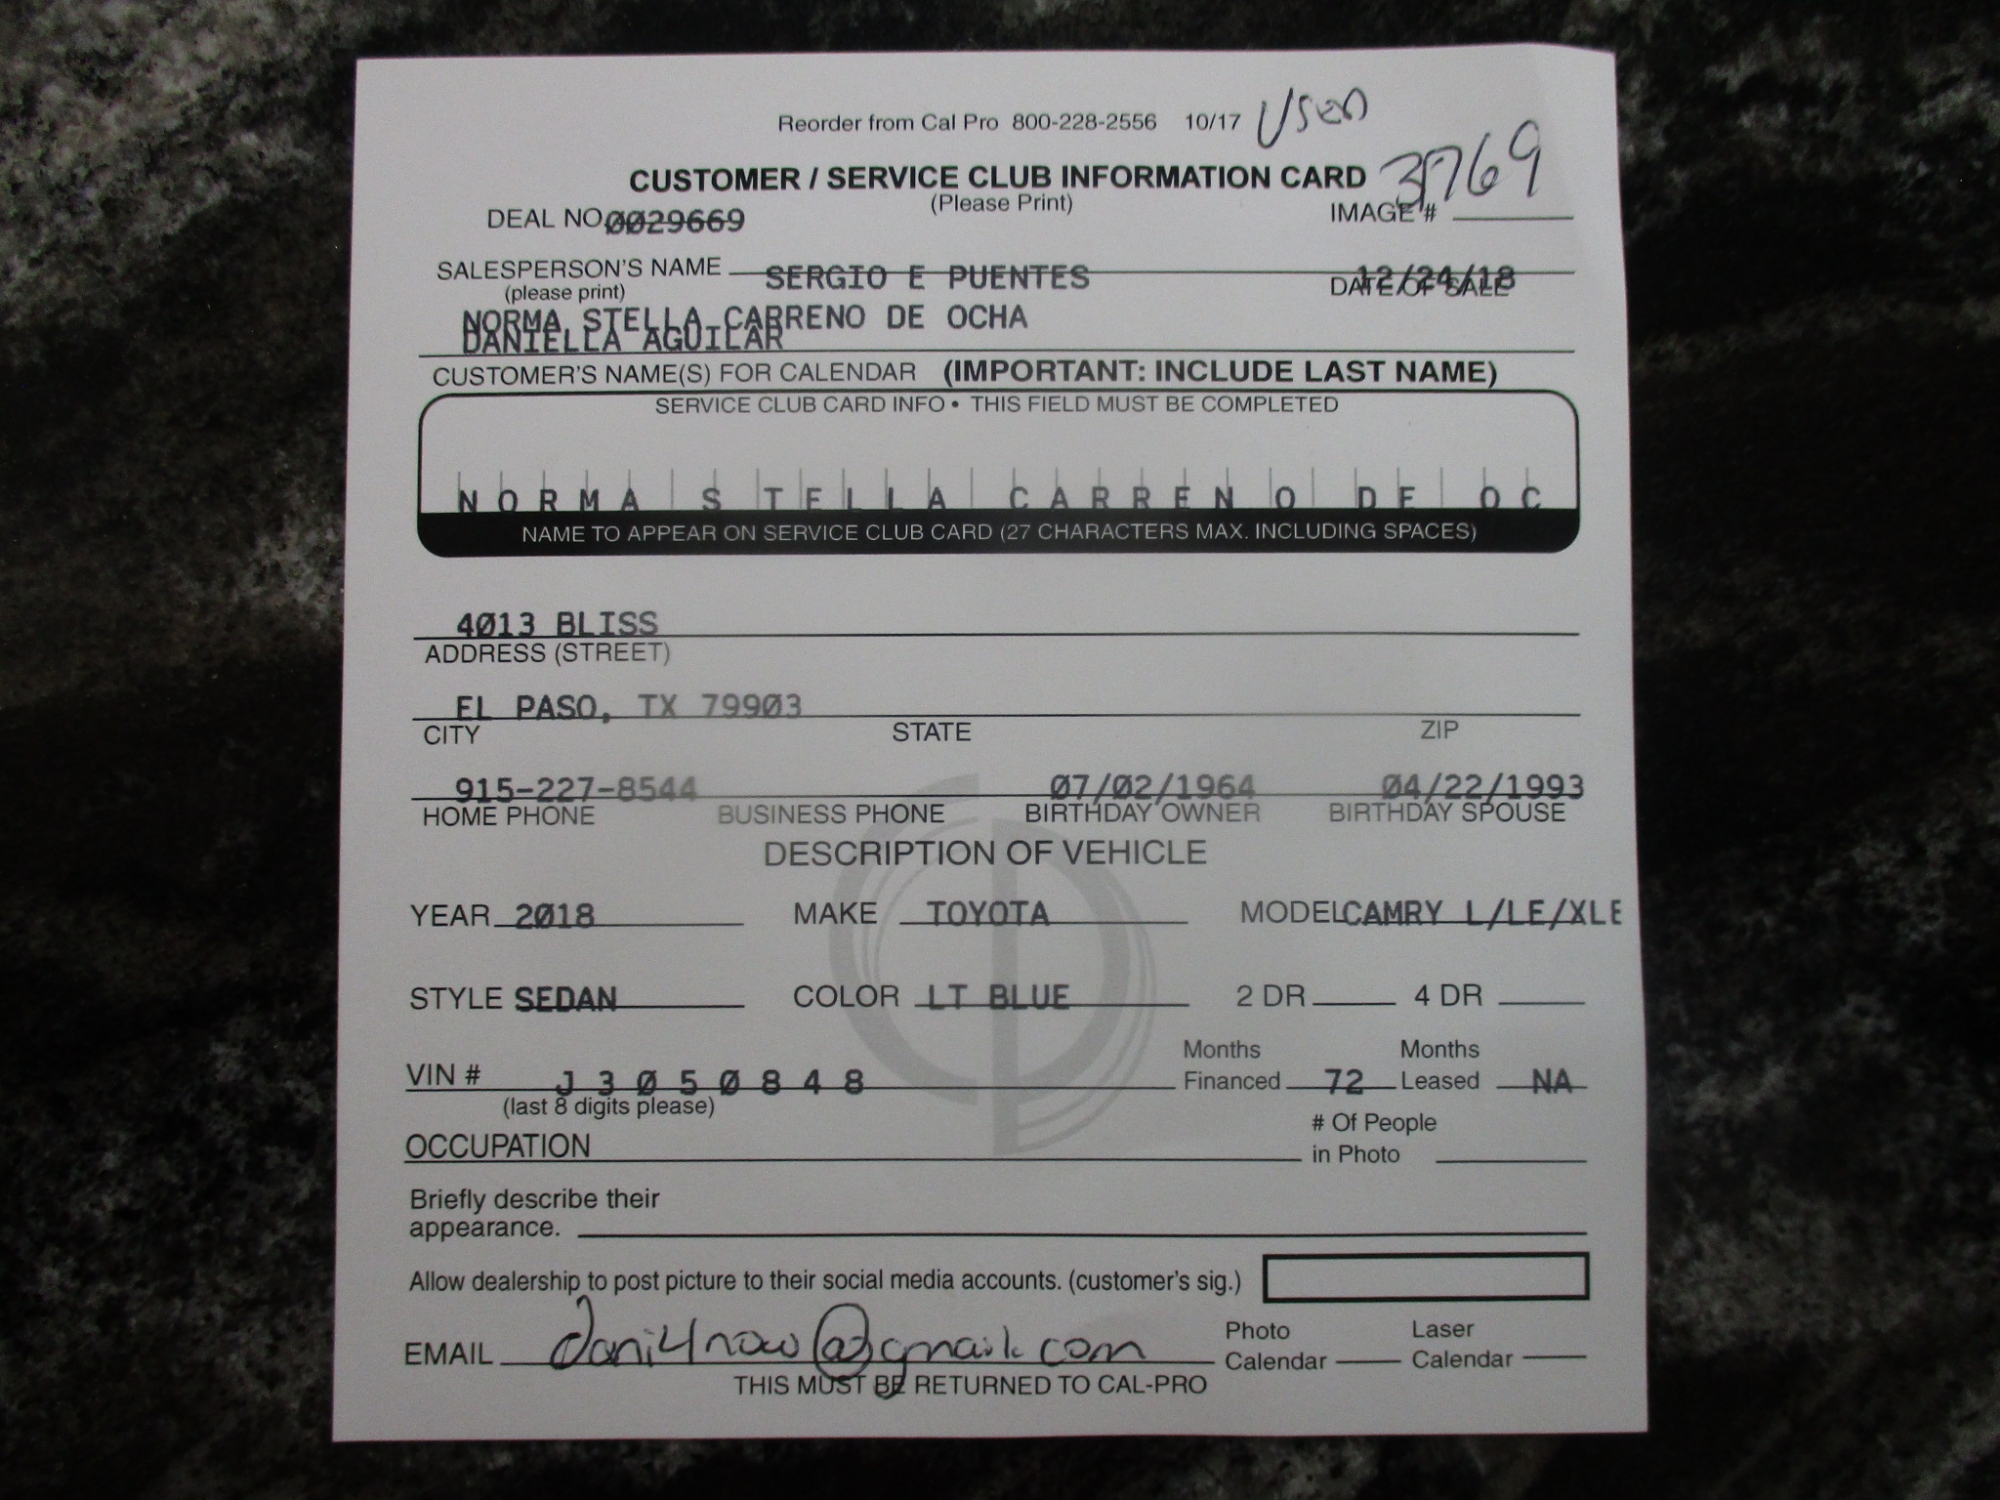 Reorder from Cal Pro 800-228-2556 10/17 Used
CUSTOMER / SERVICE CLUB INFORMATION CARD 3769
(Please Print)
DEAL NO 0029669 IMAGE #
SALESPERSON'S NAME SERGIO E PUENTES 12/24/18
(please print) DATE OF SALE
NORMA STELLA CARRENO DE OCHA
DANIELLA AGUILAR
CUSTOMER'S NAME(S) FOR CALENDAR (IMPORTANT: INCLUDE LAST NAME)
SERVICE CLUB CARD INFO • THIS FIELD MUST BE COMPLETED
NORMA STELLA CARRENO DE OC
NAME TO APPEAR ON SERVICE CLUB CARD (27 CHARACTERS MAX. INCLUDING SPACES)
4013 BLISS
ADDRESS (STREET)
EL PASO, TX 79903
CITY STATE ZIP
915-227-8544 07/02/1964 04/22/1993
HOME PHONE BUSINESS PHONE BIRTHDAY OWNER BIRTHDAY SPOUSE
DESCRIPTION OF VEHICLE
YEAR 2018 MAKE TOYOTA MODEL CAMRY L/LE/XLE
STYLE SEDAN COLOR LT BLUE 2 DR 4 DR
Months Months
VIN # J3050848 Financed 72 Leased NA
(last 8 digits please)
# Of People
OCCUPATION in Photo
Briefly describe their
appearance.
Allow dealership to post picture to their social media accounts. (customer's sig.)
Photo Laser
EMAIL dani4now@gmail.com Calendar Calendar
THIS MUST BE RETURNED TO CAL-PRO